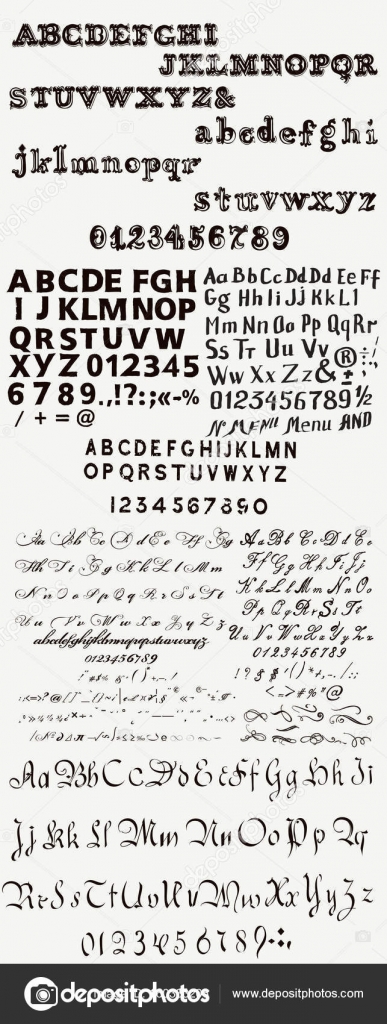 ABCDEFGHI
JKLMNOPQR
STUVWXYZ&
abcdefghi
jklmnopqr
stuvwxyz
0123456789
ABCDE FGH
I JKLMNOP
QRSTUVW
XYZ012345
6789.,!?:;«-%
/ + = @
Aa Bb Cc DdDd Ee Ff
Gg Hh Ii Jj Kk Ll
Mm Nn Oo Pp Qq Rr
Ss Tt Uu Vv ®:;
Ww Xx Zz & ±
0123456789 ½
№ МЕНЮ Menu AND
ABCDEFGHIJKLMN
OPQRSTUVWXYZ
1234567890
Aa Bb Cc Dd Ee Ff Gg
Hh Ii Jj Kk Ll Mm
Nn Oo Pp Qq Rr Ss Tt
Uu Vv Ww Xx Yy Zz
abcdefghijklmnopqrstuvwxyz
0123456789
Aa Bb Cc Dd Ee
Ff Gg Hh Ii Jj
Kk Ll Mm Nn Oo
Pp Qq Rr Ss Tt
Uu Vv Ww Xx Yy Zz
0123456789
Aa Bb Cc Dd Ee Ff Gg Hh Ii
Jj Kk Ll Mm Nn Oo Pp Qq
Rr Ss Tt Uu Vv Ww Xx Yy Zz
0123456789
depositphotos
www.depositphotos.com